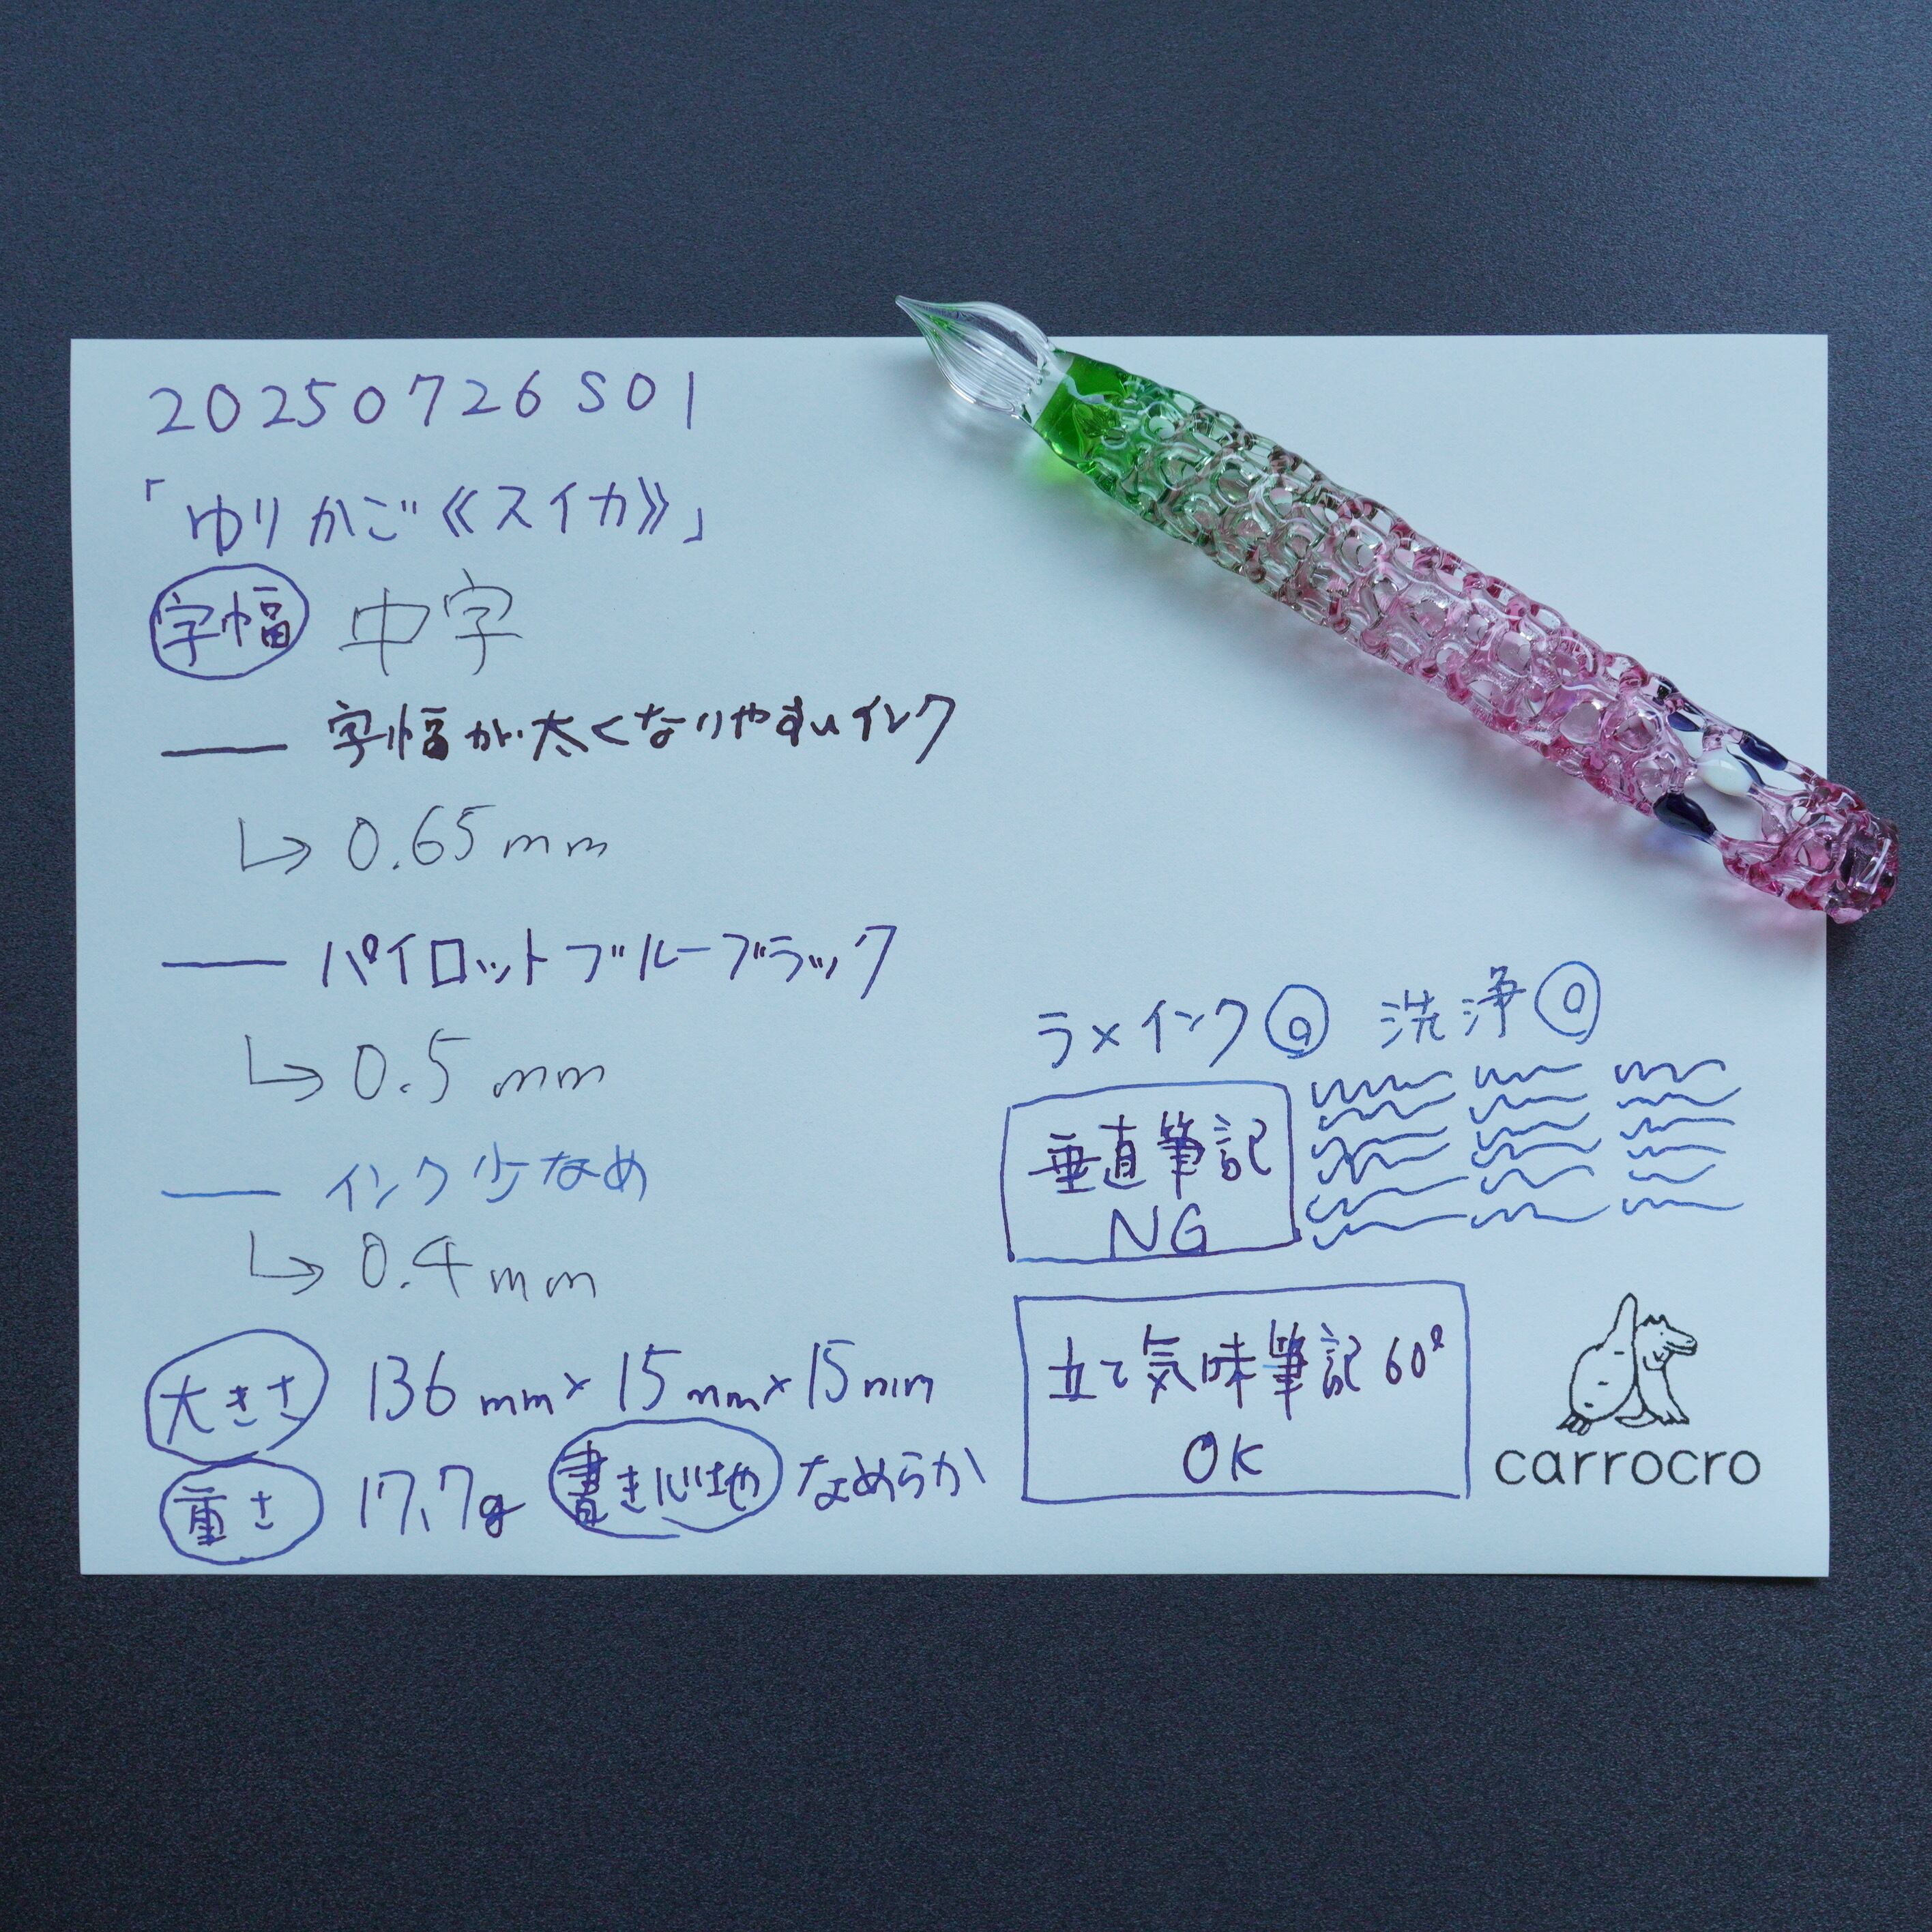 20250726S01
「ゆりかご《スイカ》」
字幅 中字
字幅が太くなりやすいインク
↳ 0.65mm
パイロットブルーブラック
↳ 0.5mm
インク少なめ
↳ 0.4mm
大きさ 136mm×15mm×15mm
重さ 17.7g 書き心地 なめらか
ラメインク◎ 洗浄◎
垂直筆記
NG
立て気味筆記60°
OK
carrocro